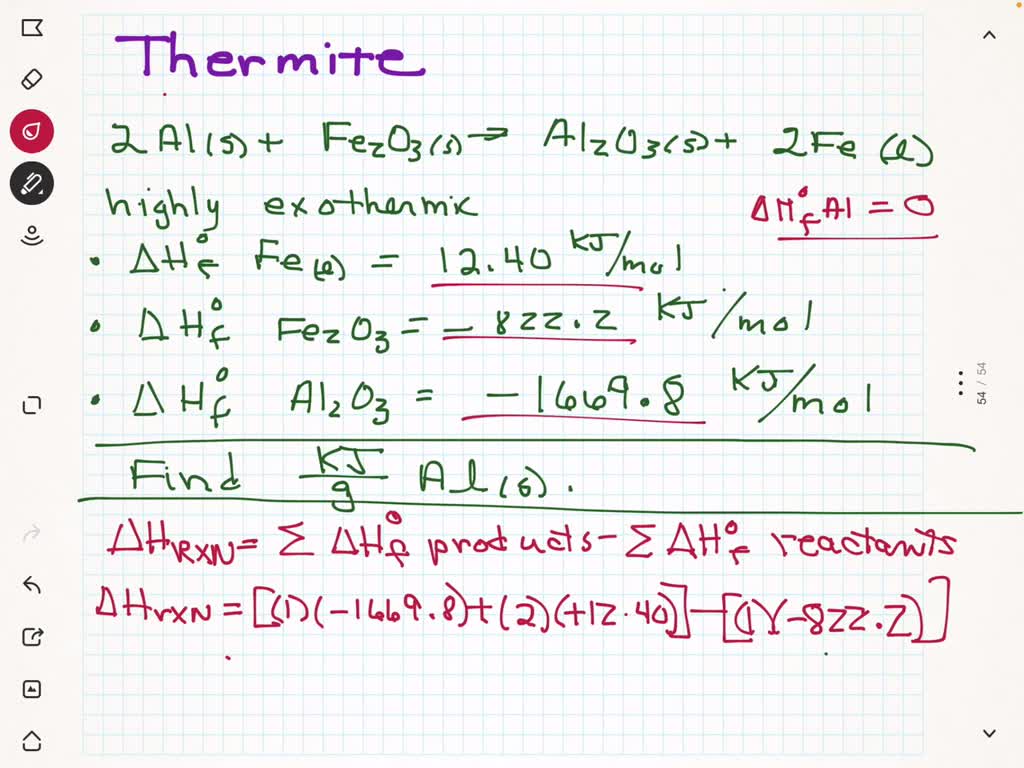 Thermite
2Al(s) + Fe₂O₃(s) → Al₂O₃(s) + 2Fe(l)
highly exothermic
ΔH°f Al = 0
• ΔH°f Fe(l) = 12.40 KJ/mol
• ΔH°f Fe₂O₃ = -822.2 KJ/mol
• ΔH°f Al₂O₃ = -1669.8 KJ/mol
Find KJ/g Al(s).
ΔHRXN = Σ ΔH°f products - Σ ΔH°f reactants
ΔHrxN = [(1)(-1669.8)+(2)(+12.40)] - [(1)(-822.2)]
54 / 54